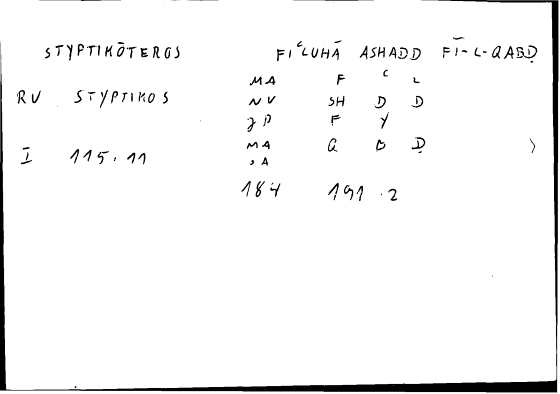 STYPTIKŌTEROS FIʿLUHĀ ASHADD FĪ-L-QABḌ
MA F ʿ L
RV STYPTIKOS NV SH D D
JP F Y
MA Q B Ḍ
I 115.11 , A
184 191.2